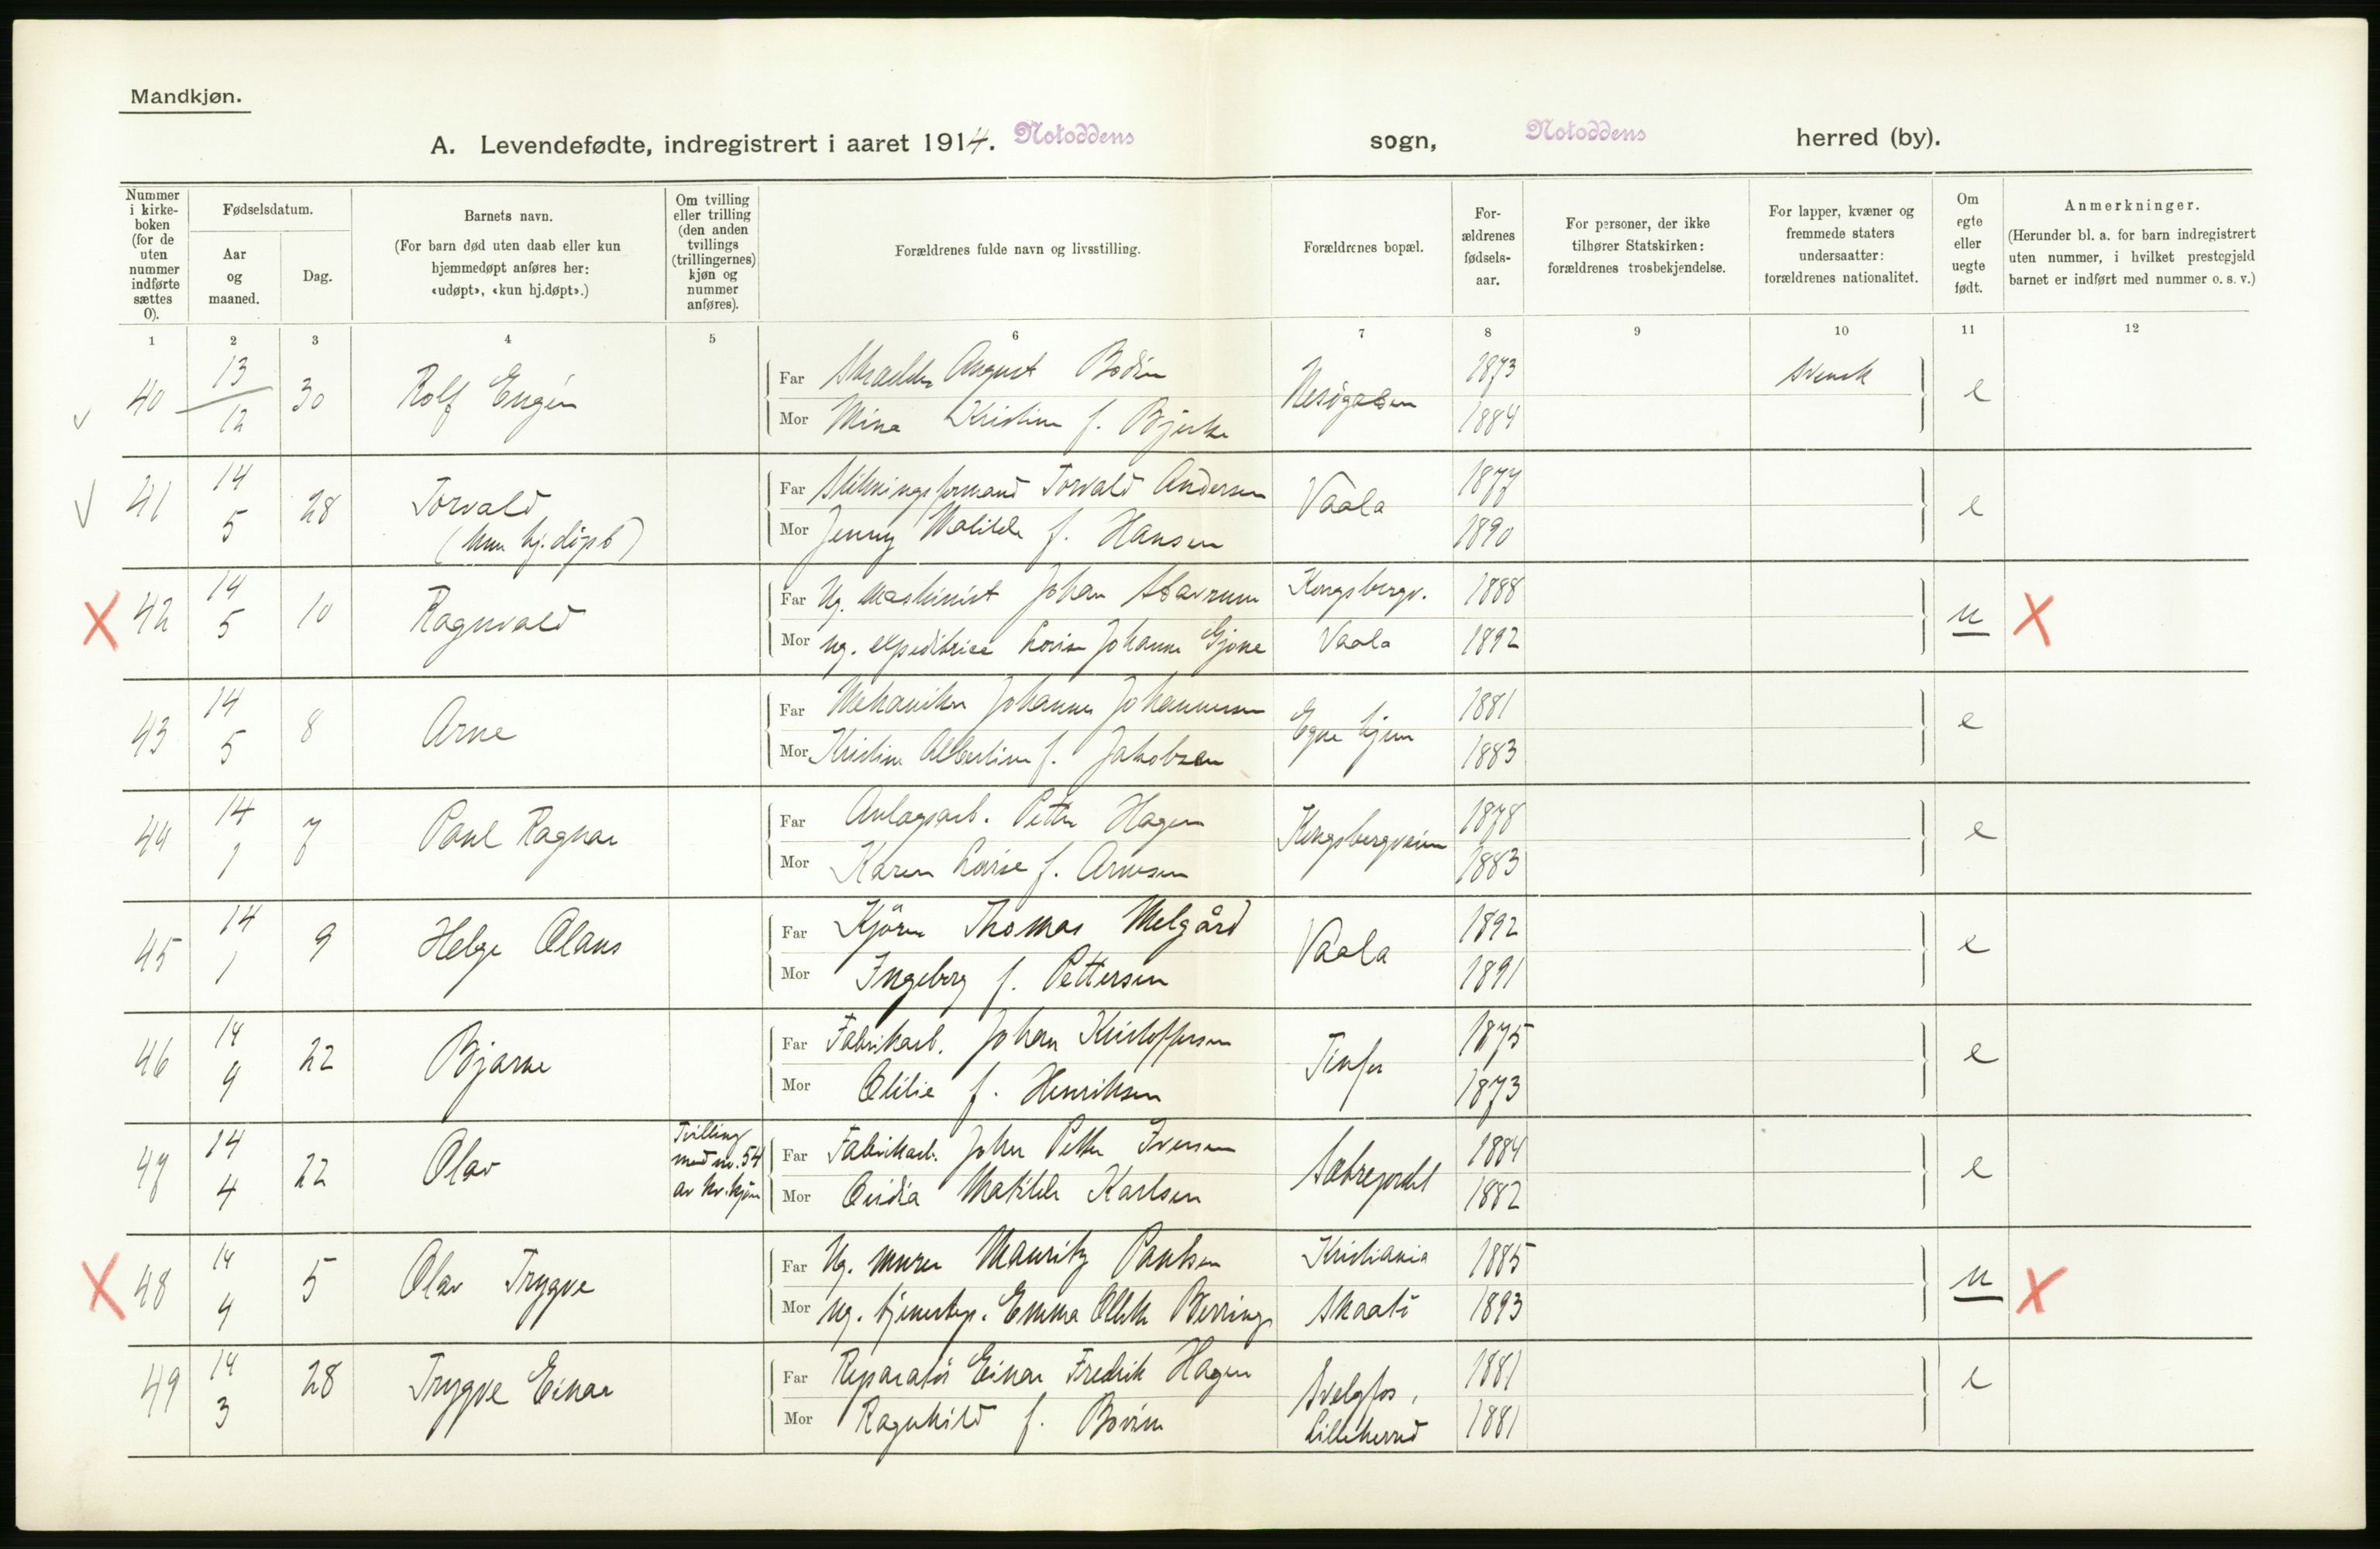 Mandkjøn.
A. Levendefødte, indregistrert i aaret 1914. Notoddens sogn, Notoddens herred (by).
Nummer i kirke-boken (for de uten nummer indførte sættes 0).
Fødselsdatum.
Aar og maaned.
Dag.
Barnets navn.
(For barn død uten daab eller kun hjemmedøpt anføres her: «udøpt», «kun hj.døpt».)
Om tvilling eller trilling (den anden tvillings (trillingernes) kjøn og nummer anføres).
Forældrenes fulde navn og livsstilling.
Forældrenes bopæl.
For-ældrenes fødsels-aar.
For personer, der ikke tilhører Statskirken: forældrenes trosbekjendelse.
For lapper, kvæner og fremmede staters undersaatter: forældrenes nationalitet.
Om egte eller uegte født.
Anmerkninger.
(Herunder bl. a. for barn indregistrert uten nummer, i hvilket prestegjeld barnet er indført med nummer o. s. v.)
1 2 3 4 5 6 7 8 9 10 11 12
40 13/12 30 Rolf Eugén Far Skrædder August Bodin 1873 svensk e
Mor Mina Kristine f. Bjerke 1884
41 14 5 28 Torvald (kun hj. døpt) Far Torvald Andersen Vaala 1877 e
Mor Jenny Matilde f. Hansen 1890
X 42 14 5 10 Ragnvald Far Ug. Maskinist Johan Kongsbergv. 1888 u X
Mor ug. expeditrice Lovise Johanne Gjone Vaala 1892
43 14 5 8 Arne Far Mekaniker Johannes Johannessen Egne hjem 1881 e
Mor Kristine Albertine f. Jakobsen 1883
44 14 1 7 Paul Ragnar Far Anlægsarb. Petter Hagen Kongsbergveien 1878 e
Mor Karen Lovise f. Arnesen 1883
45 14 1 9 Helge Olaus Far Kjörer Thomas Melgård Vaala 1892 e
Mor Ingeborg f. Pettersen 1891
46 14 9 22 Bjarne Far Fabrikarb. Johan Kristoffersen Tinfos 1875 e
Mor Otilie f. Henriksen 1873
47 14 4 22 Olav Tvilling med no. 54 av kv.kjøn Far Fabrikarb. Johan Petter Iversen Sætrejordet 1884 e
Mor Matilde Karlsen 1882
X 48 14 4 5 Olav Trygve Far Ug. murer Mauritz Paulsen Kristiania 1885 u X
Mor ug. tjenestep. Emma Skaatö 1893
49 14 3 28 Trygve Einar Far Reparatör Einar Fredrik Hagen Svelgfos, 1881 e
Mor Ragnhild f. Bovim Lilleherred 1881